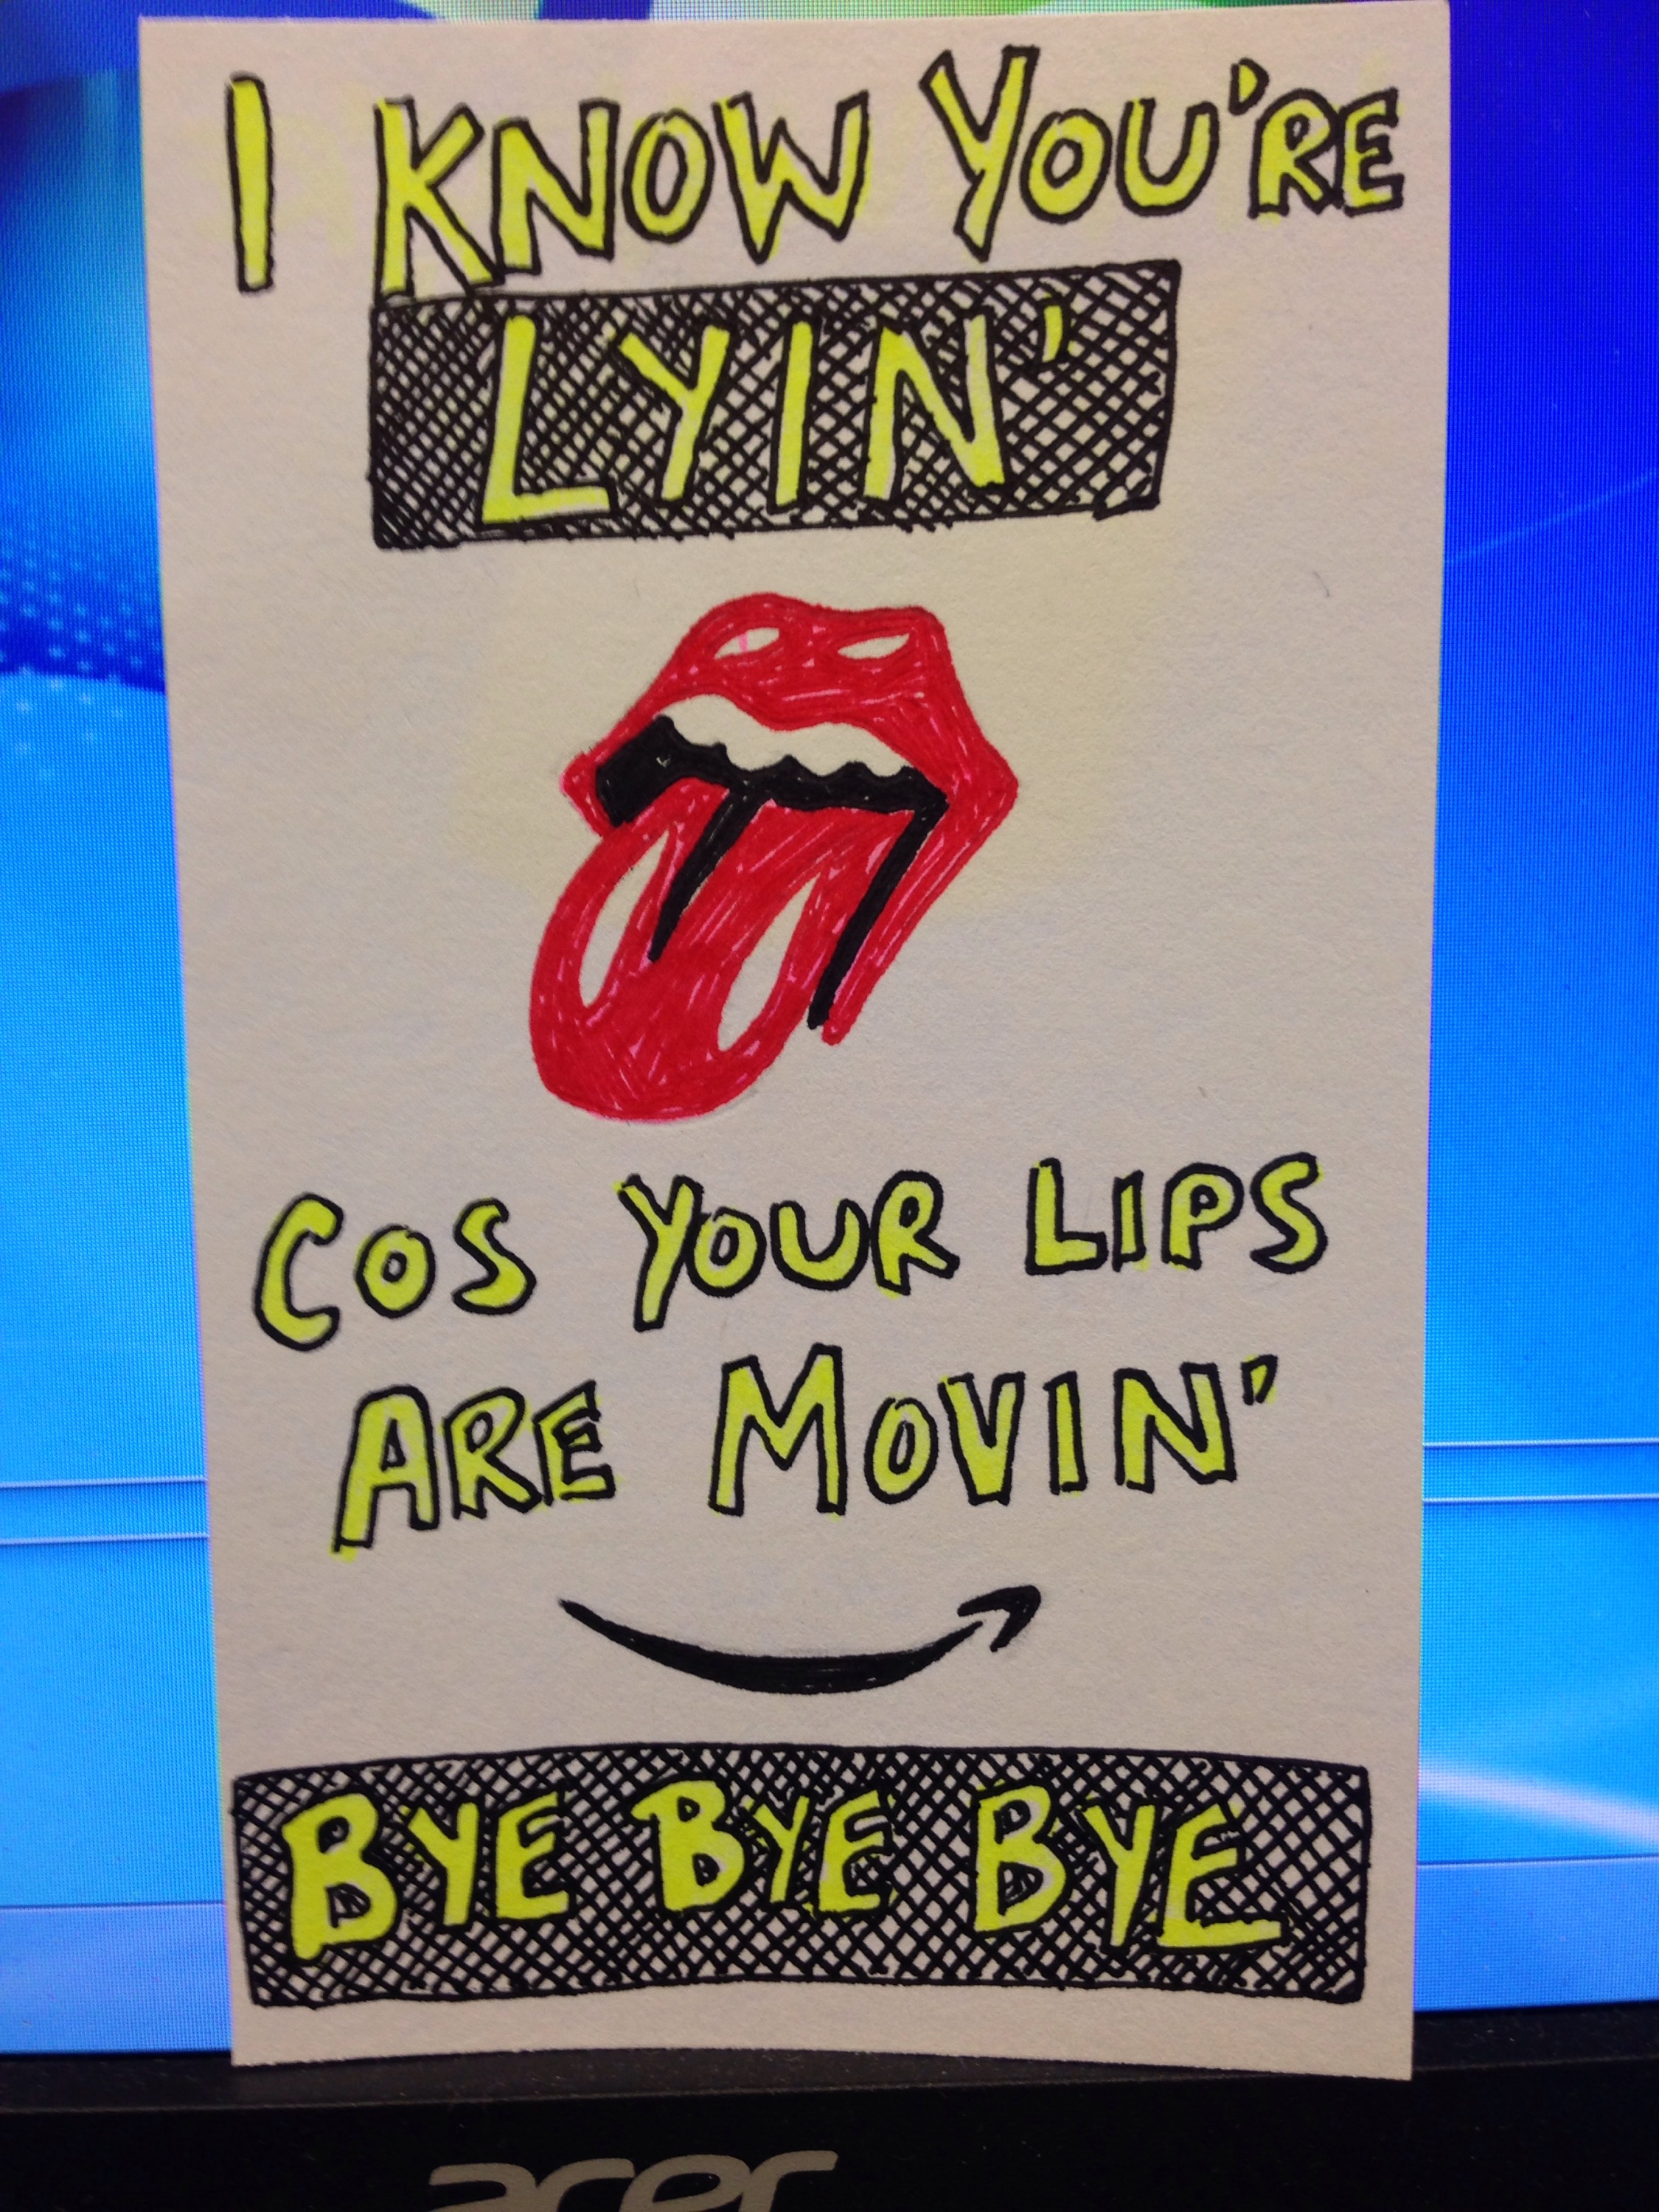 I KNOW YOU'RE
LYIN'
COS YOUR LIPS
ARE MOVIN'
BYE BYE BYE
acer